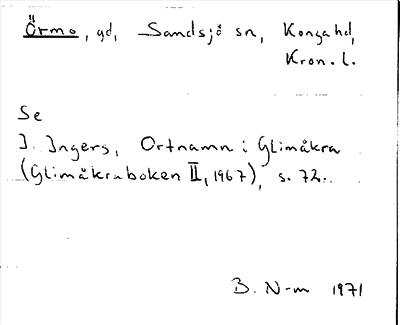 Örmo, gd, Sandsjö sn, Konga hd,
Kron. l.
Se
I. Ingers, Ortnamn i Glimåkra
(Glimåkraboken II, 1967), s. 72.
B. N-m 1971